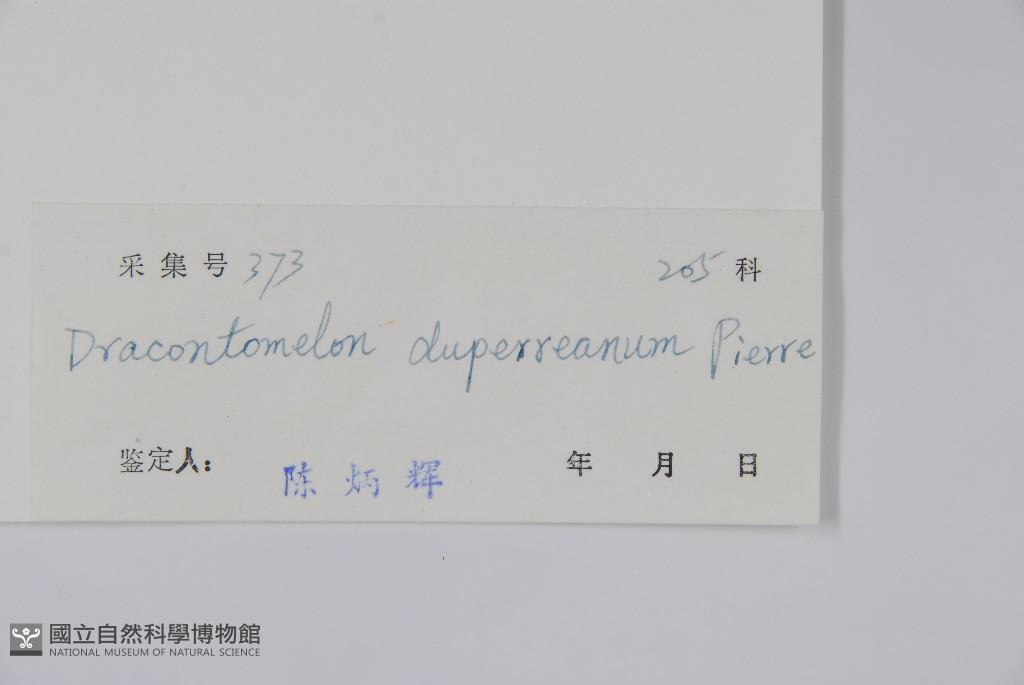 采集号 373 205 科
Dracontomelon duperreanum Pierre
鉴定人: 陈炳辉 年 月 日
國立自然科學博物館
NATIONAL MUSEUM OF NATURAL SCIENCE